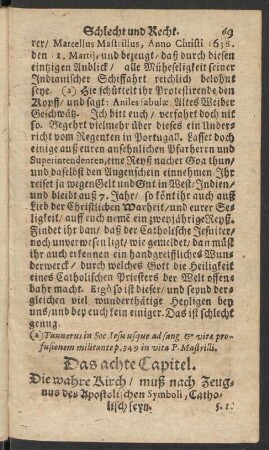 Schlecht und Recht. 69
rer/ Marcellus Mastrillus, Anno Christi 1636.
den 1, Martij, und bezeugt/ daß durch diesen
eintzigen Anblick/ alle Müheseligkeit seiner
Indianischer Schiffahrt reichlich belohnt
seye. (a) Hie schüttelt ihr Protestirende den
Kopff/ und sagt: Aniles fabulæ. Altes Weiber
Geschwätz. Ich bitt euch/ verfahrt doch nit
so. Begehrt vielmehr über dieses ein Underst
richt vom Regenten in Portugall. Lasset doch
einige auß euren ansehnlichen Pfarherrn und
Superintendenten, eine Reyß nacher Goa thun/
und daselbst den Augenschein einnehmen. Ihr
reiset ja wegen Gelt und Gut in West/ Indien/
und bleibt auß 7. Jahr/ so könt ihr auch auß
Lieb der Christlichen Warheit/ und eurer See
ligkeit/ auff euch nemē ein zweyjährige Reyß.
Findet ihr dan/ daß der Catholische Jesuiter
noch unverwesen ligt/ wie gemeldet/ dan müst
ihr auch erkennen ein handgreiffliches Wuns
derwerck/ durch welches Gott die Heiligkeit
eines Catholischen Priesters der Welt offens
bahr macht. Ergò so ist dieser/ und seynd ders
gleichen viel wunderthätige Heyligen bey
uns/ und bey euch kein einiger. Das ist schlecht
genug.
(a) Tannerus in Soc. Jesu usque ad sang. & vitæ pro-
fusionem militante p. 349 in vita P. Mastrilli.
Das achte Capitel.
Die wahre Kirch/ muß nach Zeug-
nus des Apostolischen Symboli, Catho-
lisch seyn. §. 1.